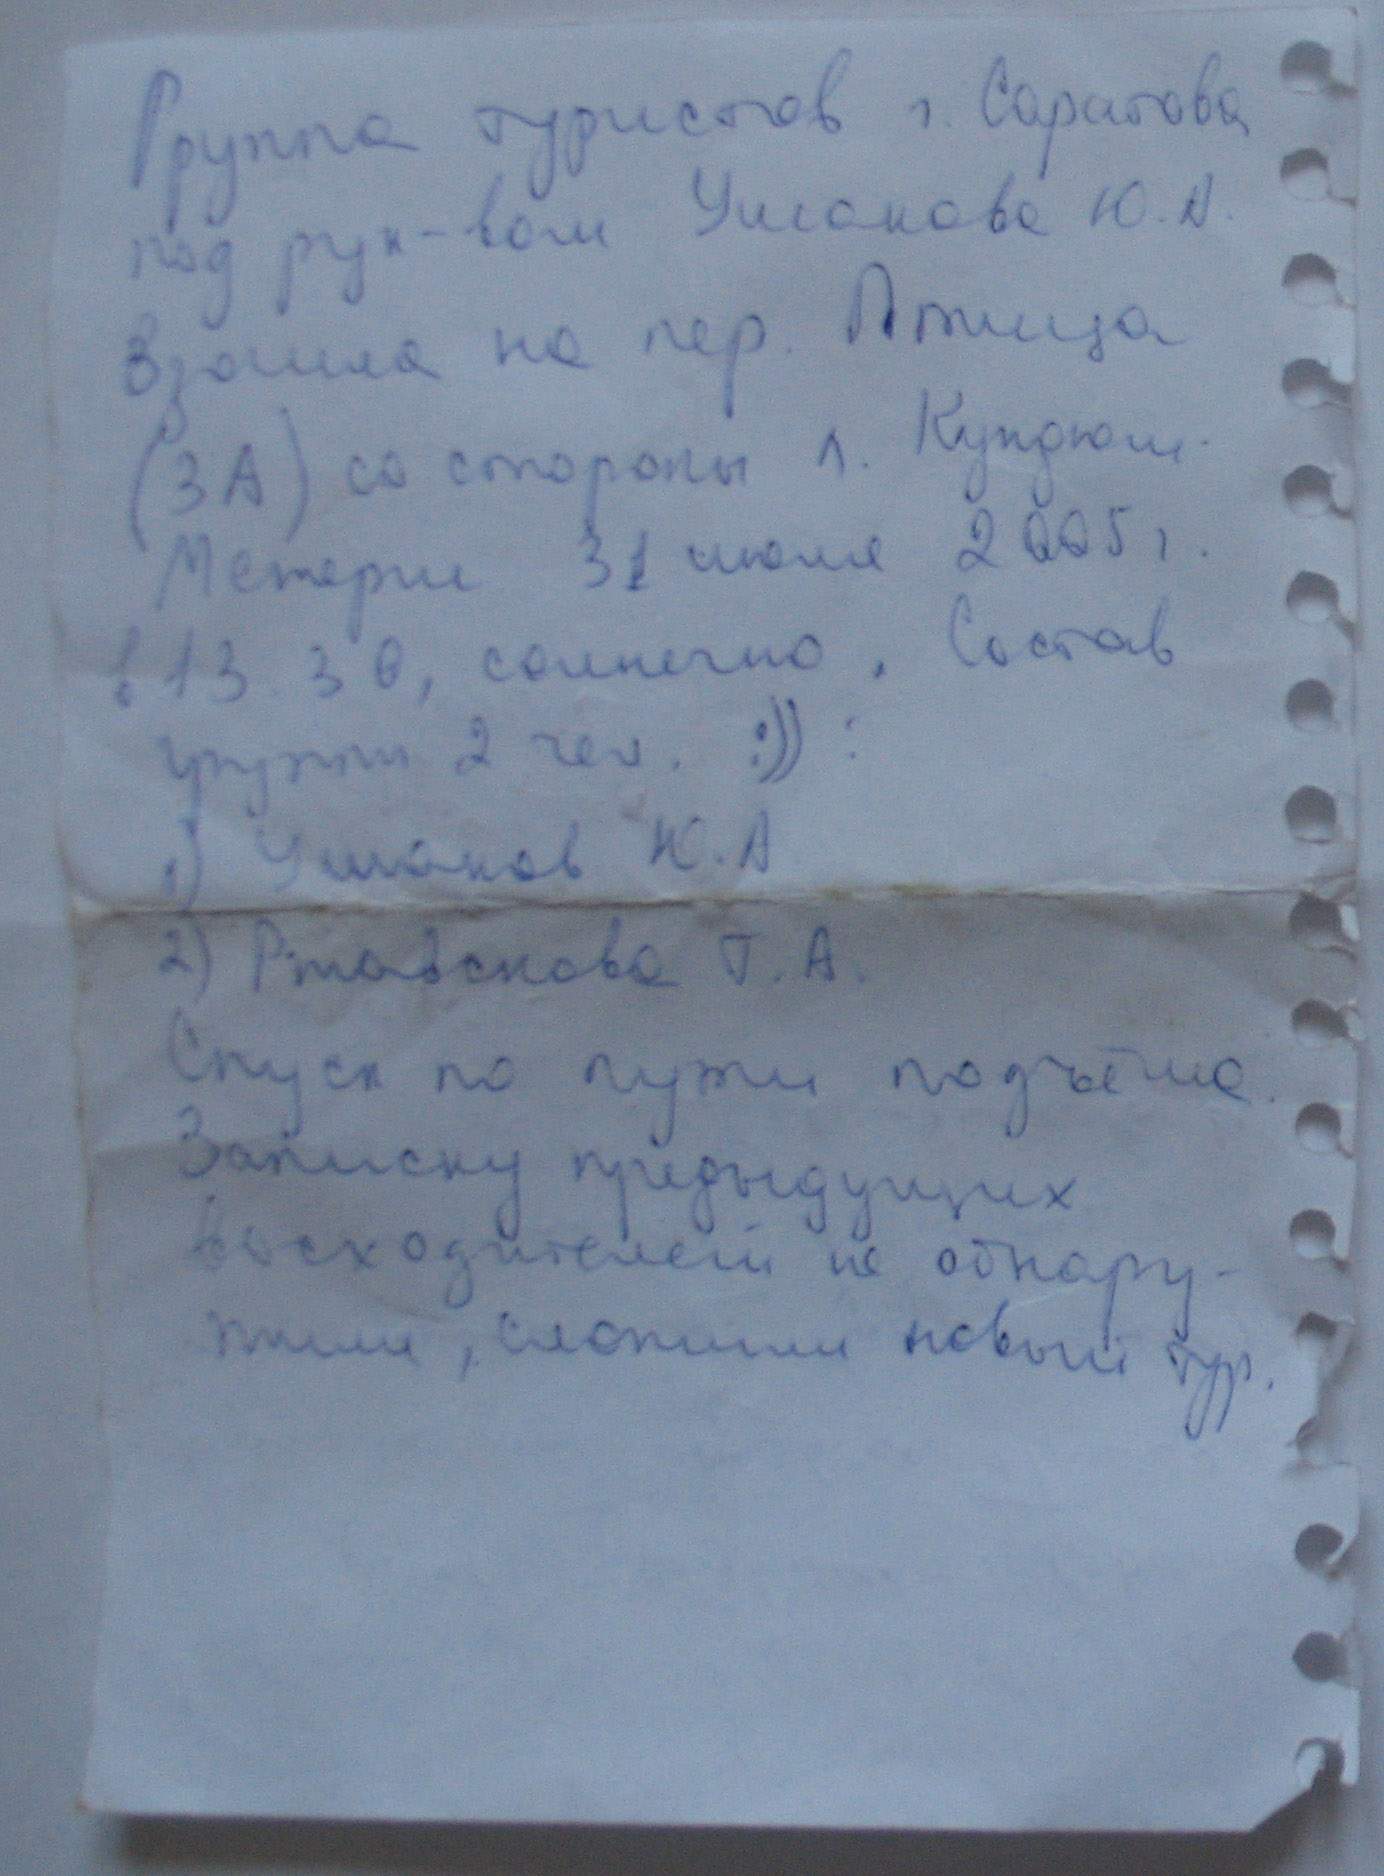 Группа туристов г. Саратова
под рук-вом Ушакова Ю.А.
взошла на пер. Птица
(3А) со стороны л. Кундюм-
Мстери 31 июля 2005 г.
в 13.30, солнечно. Состав
группы 2 чел. :)) :
1) Ушаков Ю.А
2) Т.А.
Спуск по пути подъёма.
Записку предыдущих
восходителей не обнару-
жили, сложили новый тур.